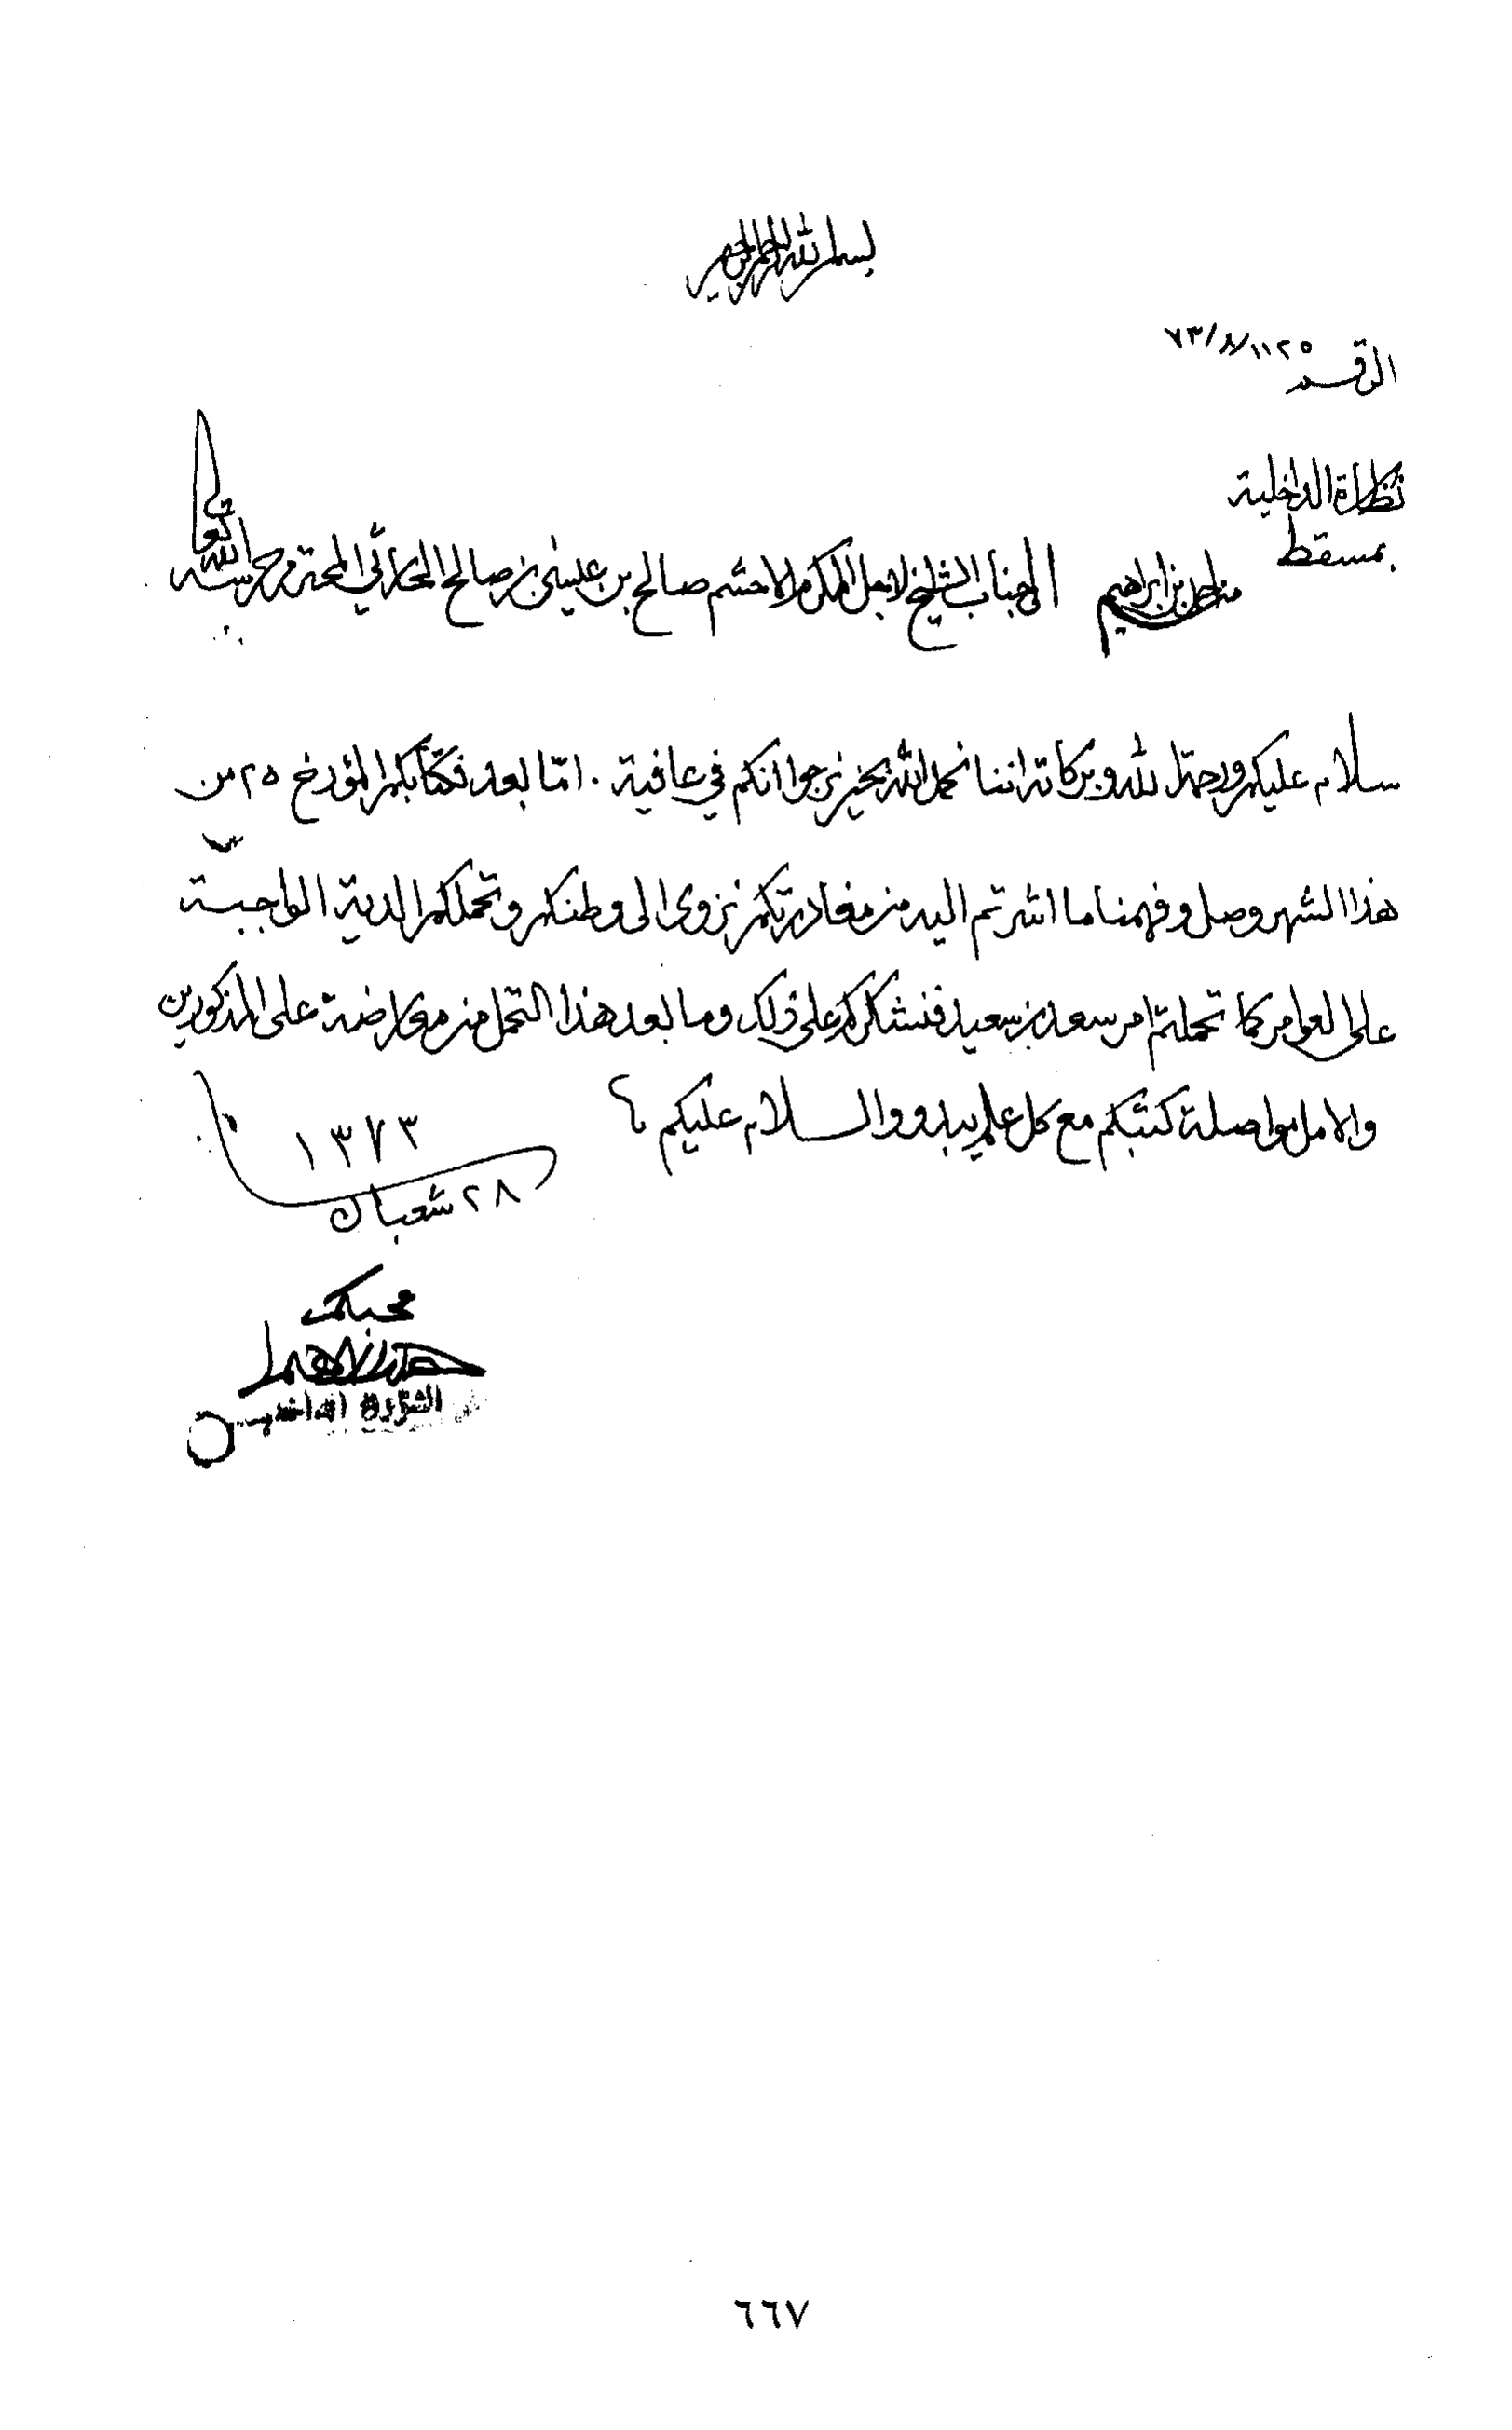 بسم الله الرحمن الرحيم
الرقم ١١٢٥/٨/٧٣
نظارة الداخلية
بمسقط
من احمد بن ابراهيم الى جناب الشيخ الاجل المكرم الاحشم صالح بن عيسى بن صالح الحارثي المحترم حرسه الله تعالى
سلام عليكم ورحمة الله وبركاته اننا نحمد الله بخير نرجوا انكم في عافية . امّا بعد فكتابكم المؤرخ ٢٥ من
هذا الشهر وصل وفهمنا ما اشرتم اليه من مغادرتكم نزوى الى وطنكم وتحملكم الدية الواجبة
على العوامر كما تحملتم امر سعد بن سعيد فنشكركم على ذلك وما بعد هذا التحمل من معارضة على المذكورين
والامل مواصلة كتبكم مع كل علم يبدو والسلام عليكم
١٣٧٣
٢٨ شعبان
محبك
احمد بن ابراهيم
الداخلية
٦٦٧